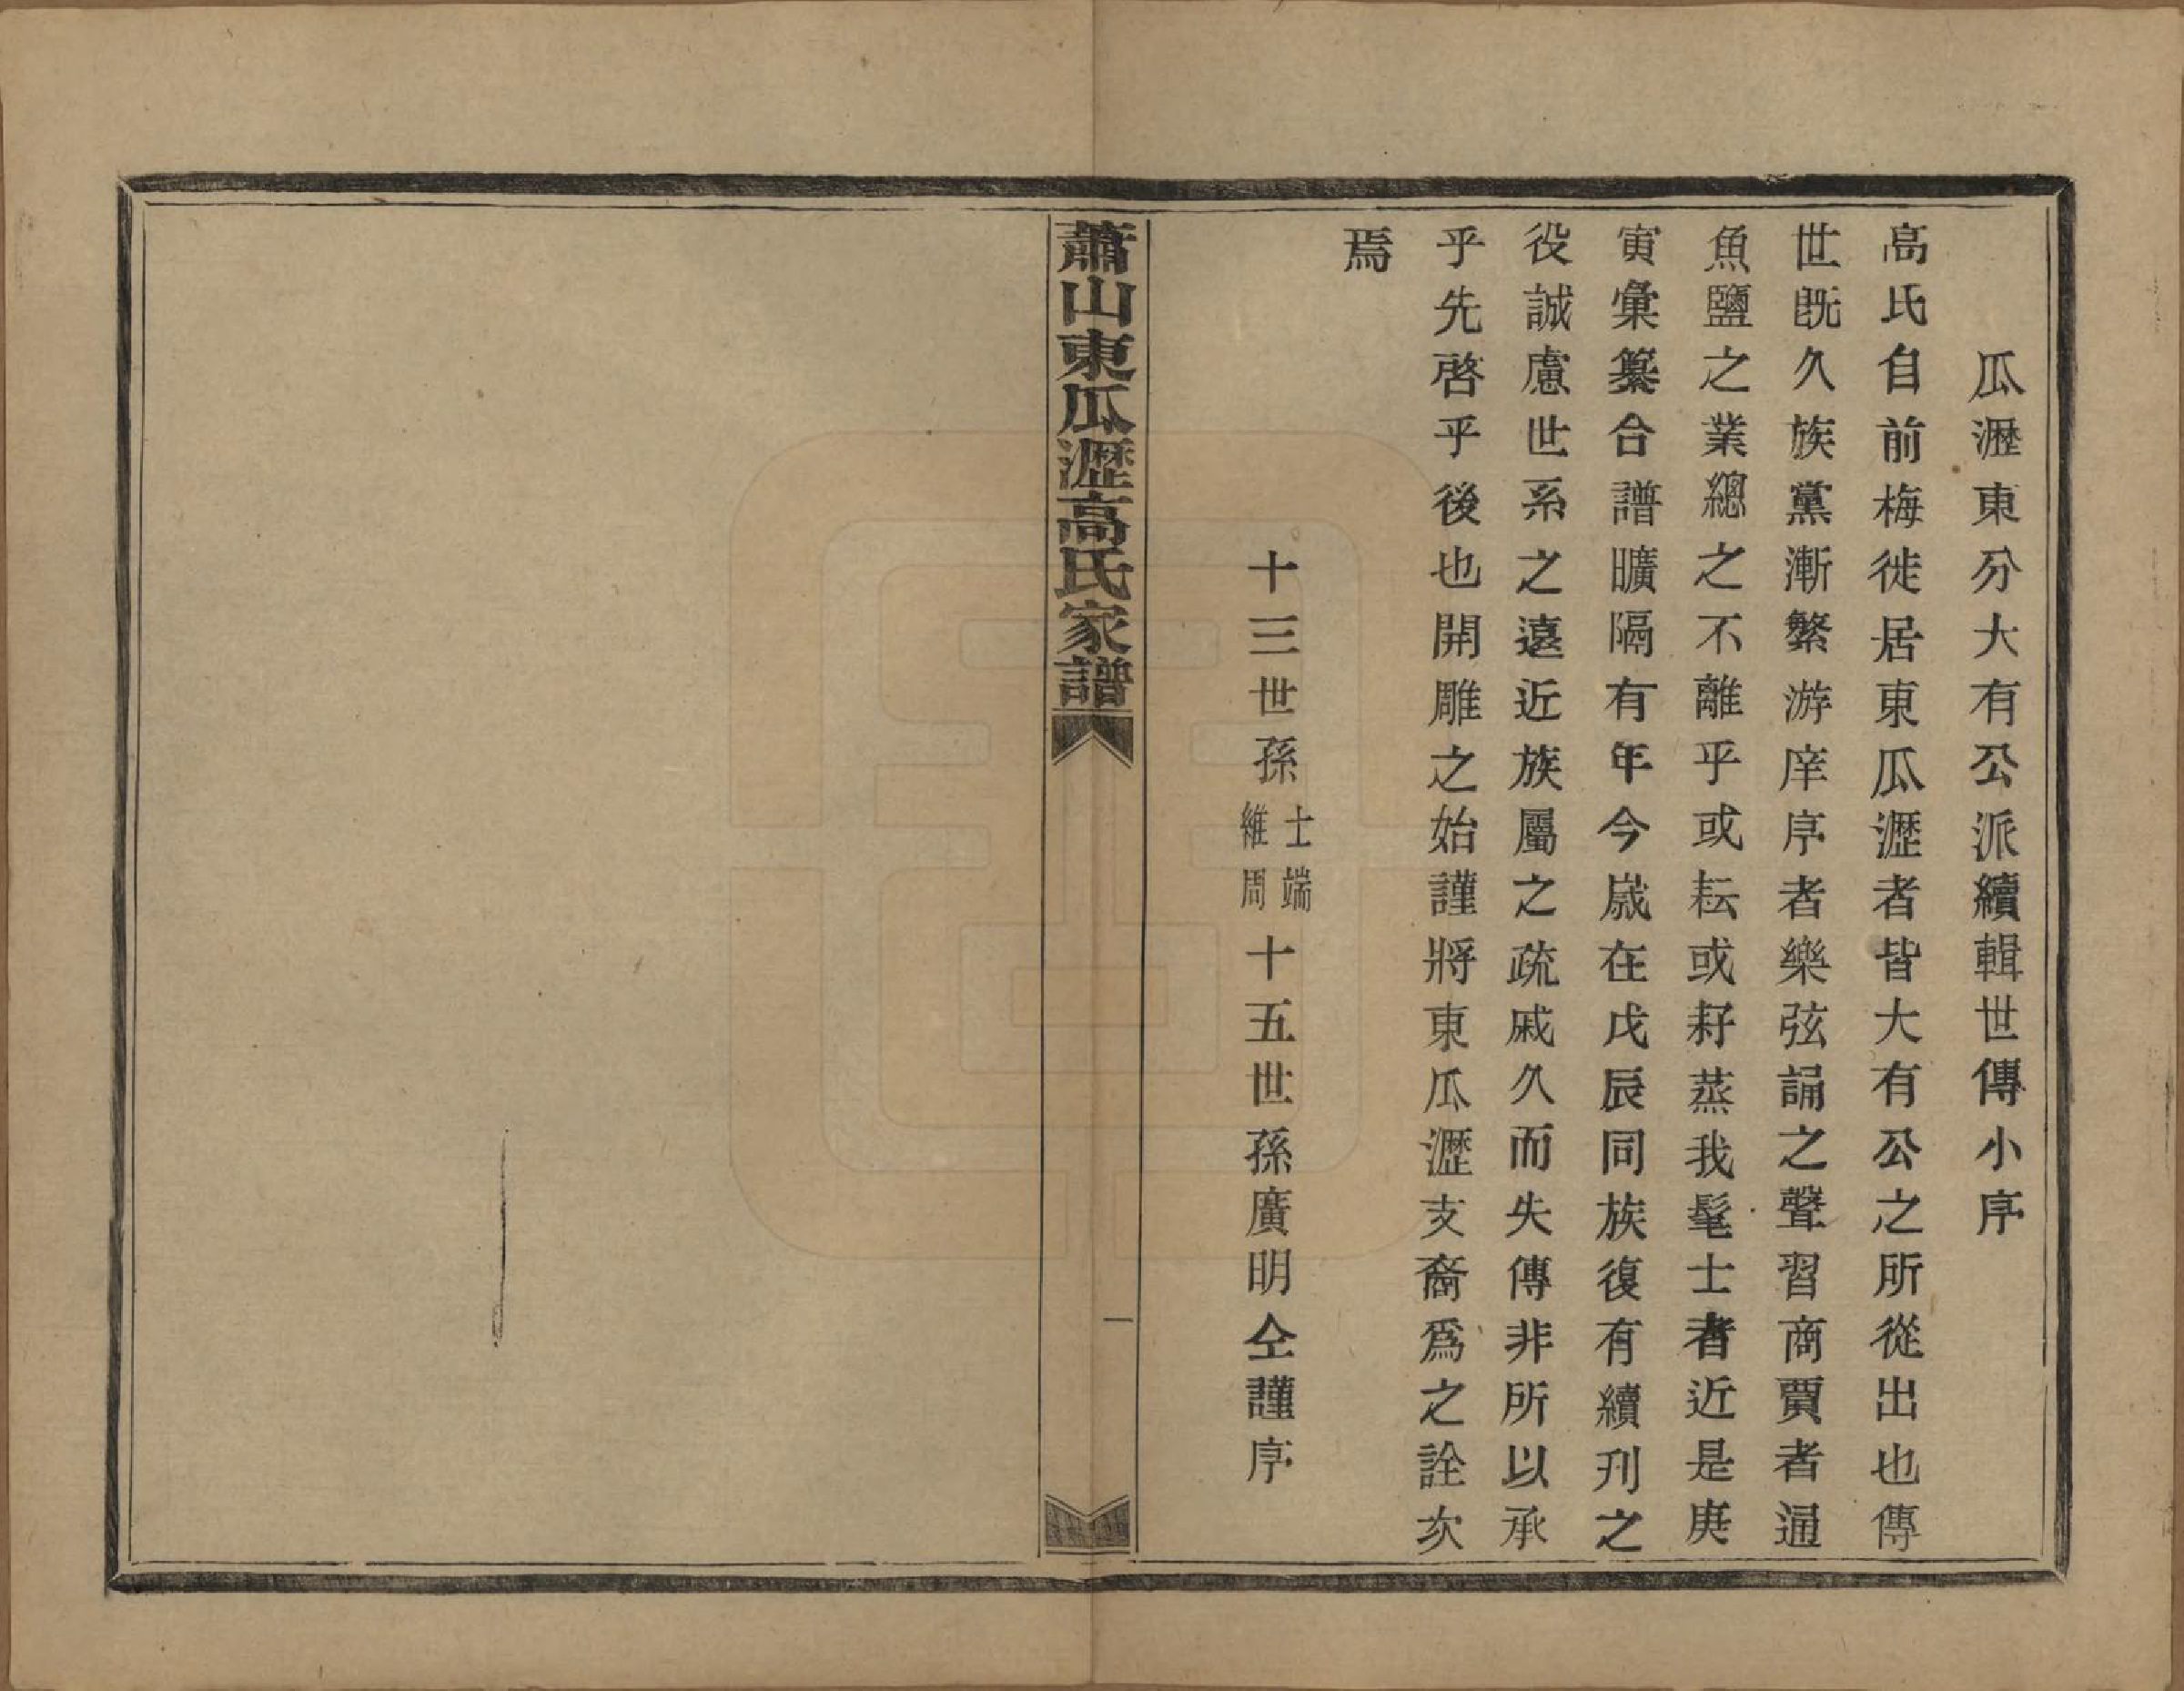 瓜瀝東分大有公派續輯世傳小序
高氏自前梅徙居東瓜瀝者皆大有公之所從出也傳
世既久族黨漸繁游庠序者樂弦誦之聲習商賈者通
魚鹽之業總之不離乎或耘或耔蒸我髦士者近是庚
寅彙纂合譜曠隔有年今歲在戊辰同族復有續刊之
役誠慮世系之遠近族屬之疏戚久而失傳非所以承
乎先啓乎後也開雕之始謹將東瓜瀝支裔爲之詮次
焉
十三世孫士端維周十五世孫廣明仝謹序
蕭山東瓜瀝高氏家譜
一